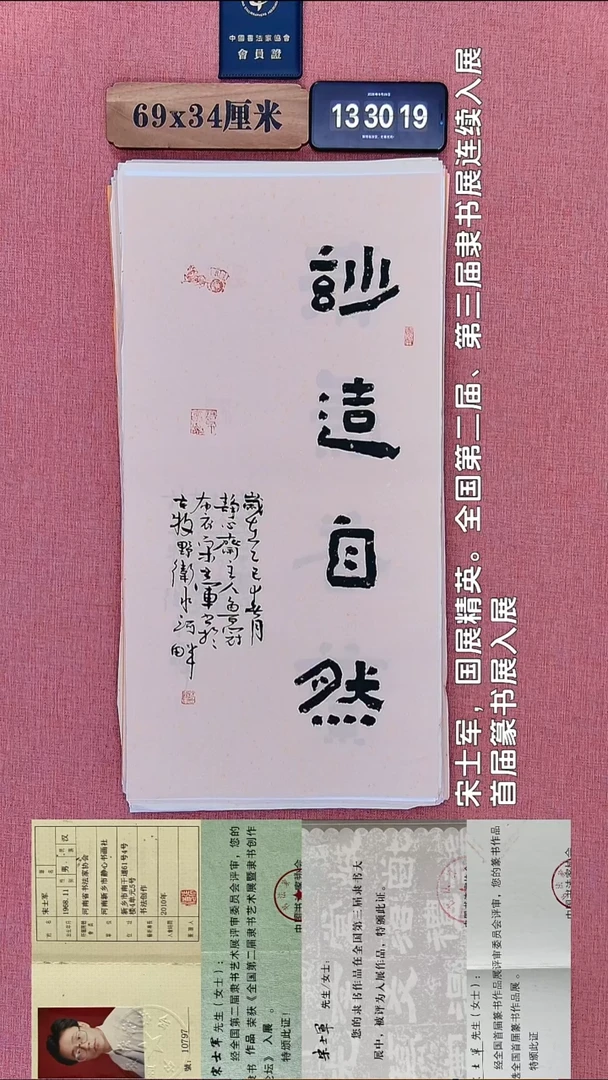 中國書法家協會
會員證
69x34厘米
13 30 19
玅造自然
歲在乙巳
静心齋主人
布衣宋士軍書於
古牧野衛水河畔
宋士军，国展精英。全国第二届、第三届隶书展连续入展
首届篆书展入展
宋士军
1968.11 男 汉
河南省书法家协会
河南新乡市静心书画社
新乡市南干道61号4号
楼4单元5号
书法创作
2010年
號：10797
宋士军 先生（女士）：
经全国第二届隶书艺术展评审委员会评审，您的
隶书 作品 荣获《全国第二届隶书艺术展暨隶书创作
论坛》 入展 。
特颁此证！
宋士軍 先生/女士：
您的隶书作品在全国第三届隶书大
展中，被评为入展作品，特颁此证。
士军 先生（女士）：
经全国首届篆书作品展评审委员会评审，您的篆书作品
选全国首届篆书作品展。
特颁此证